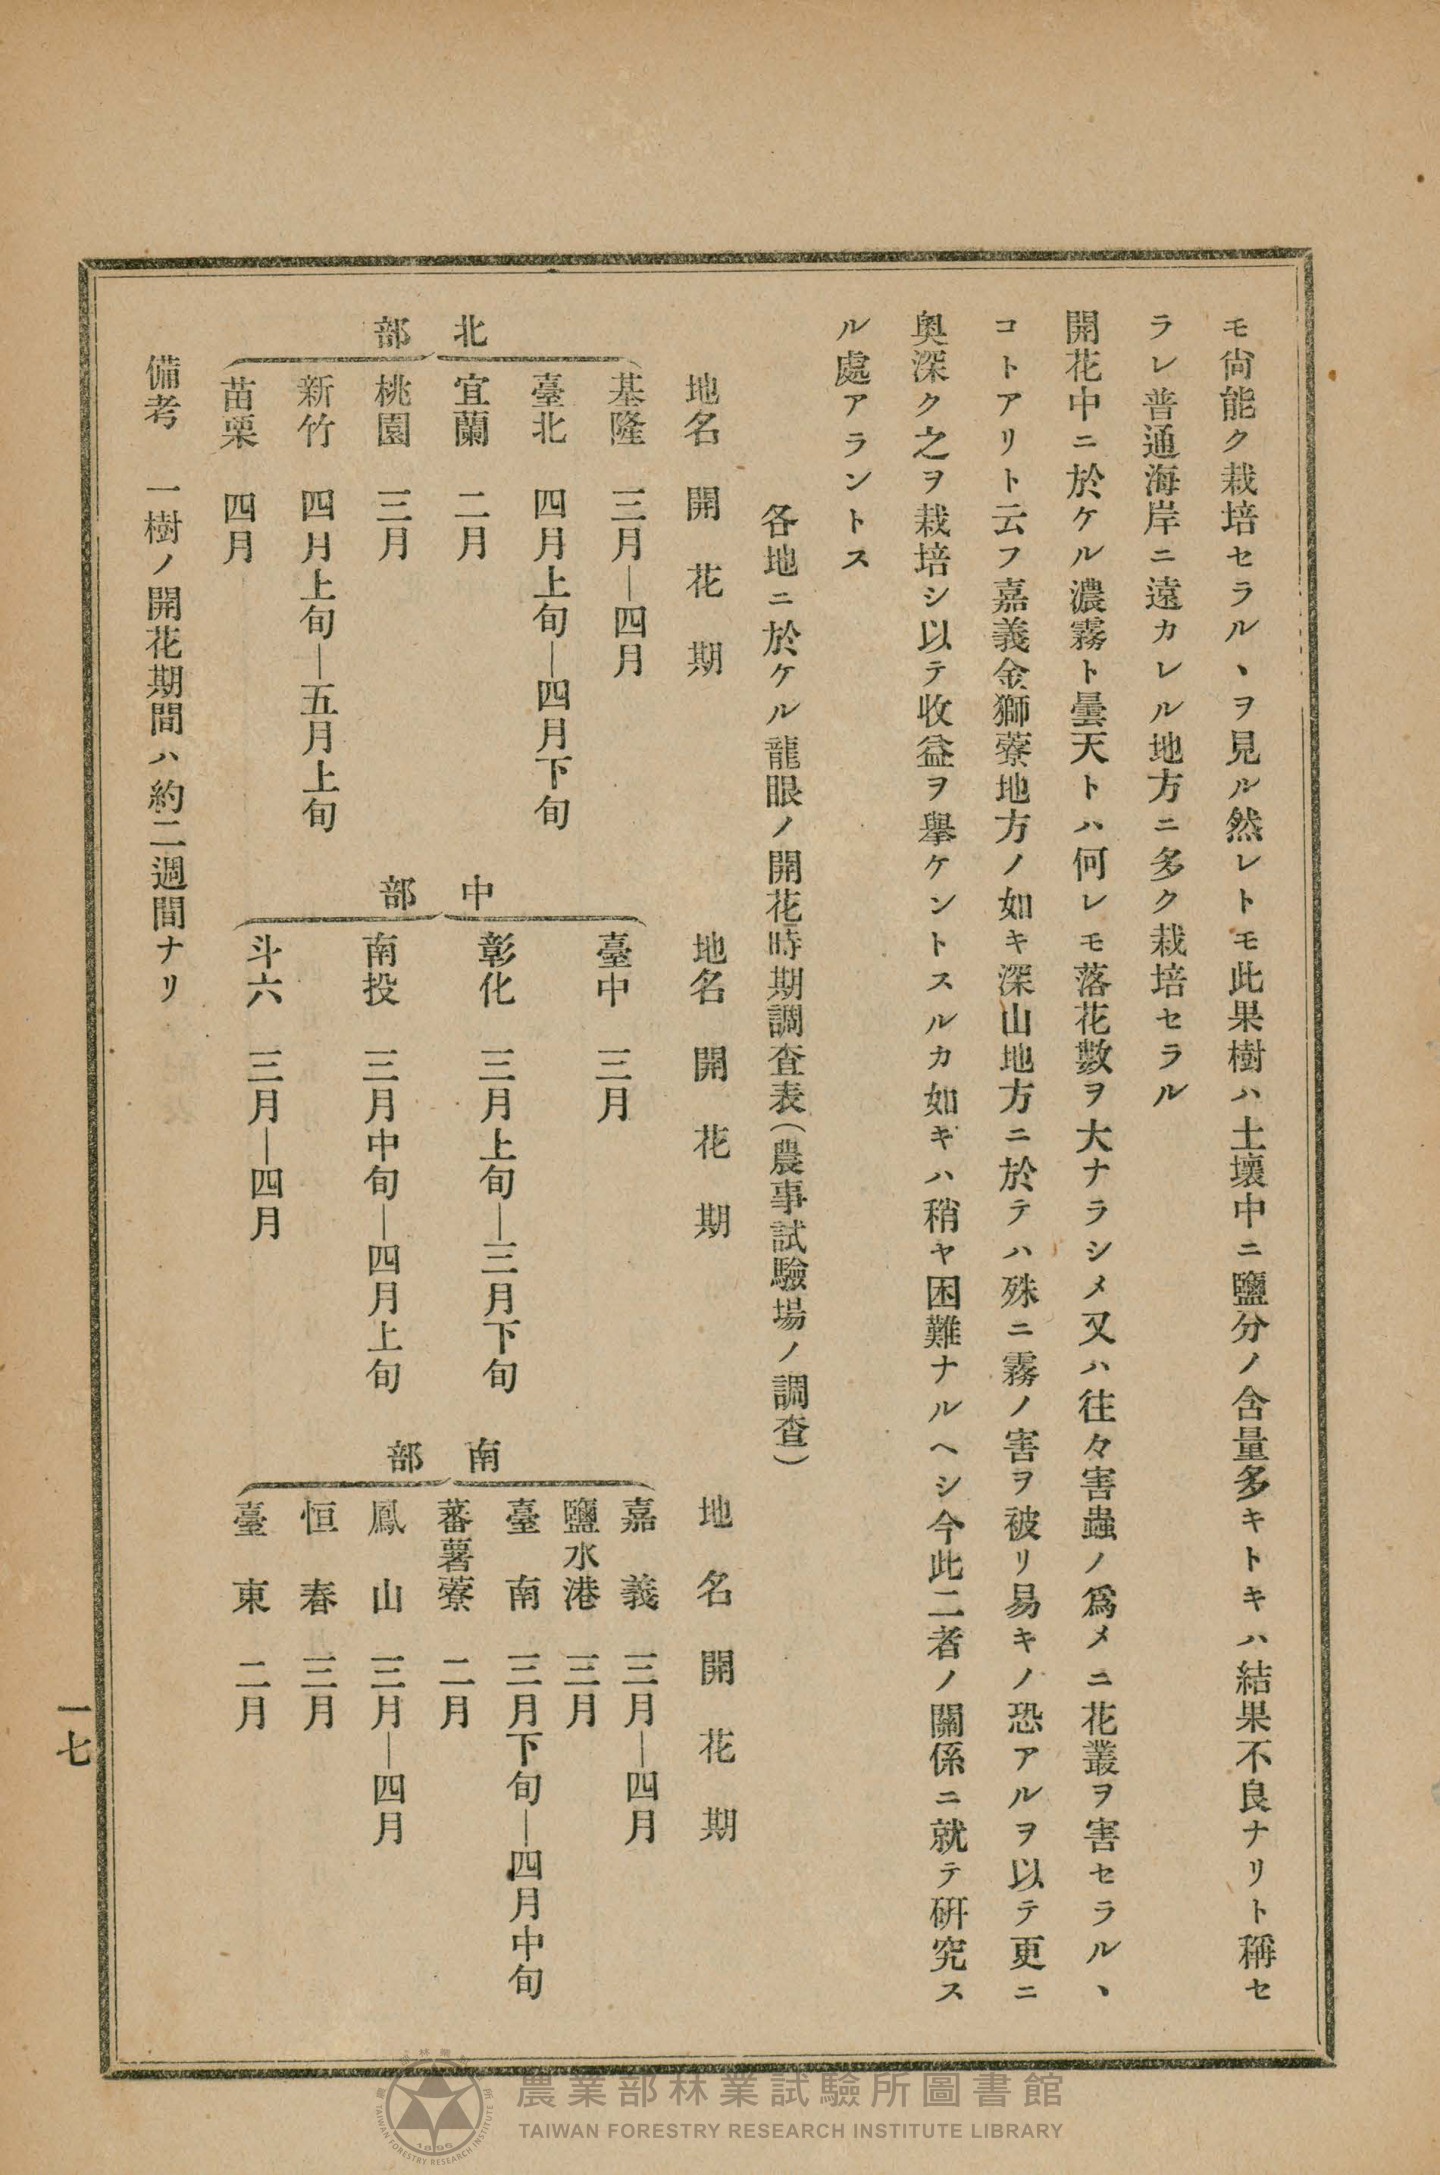 モ尙能ク栽培セラルヽヲ見ル然レトモ此果樹ハ土壤中ニ鹽分ノ含量多キトキハ結果不良ナリト稱セ
ラレ普通海岸ニ遠カレル地方ニ多ク栽培セラル
開花中ニ於ケル濃霧ト曇天トハ何レモ落花數ヲ大ナラシメ又ハ往々害蟲ノ爲メニ花叢ヲ害セラルヽ
コトアリト云フ嘉義金獅藔地方ノ如キ深山地方ニ於テハ殊ニ霧ノ害ヲ被リ易キノ恐アルヲ以テ更ニ
奥深ク之ヲ栽培シ以テ收益ヲ擧ケントスルカ如キハ稍ヤ困難ナルヘシ今此二者ノ關係ニ就テ硏究ス
ル處アラントス
各地ニ於ケル龍眼ノ開花時期調査表(農事試驗場ノ調査)
地名 開花期
北部
基隆 三月―四月
臺北 四月上旬―四月下旬
宜蘭 二月
桃園 三月
新竹 四月上旬―五月上旬
苗栗 四月
地名 開花期
中部
臺中 三月
彰化 三月上旬―三月下旬
南投 三月中旬―四月上旬
斗六 三月―四月
地名 開花期
南部
嘉義 三月―四月
鹽水港 三月
臺南 三月下旬―四月中旬
蕃薯藔 二月
鳳山 三月―四月
恒春 三月
臺東 二月
備考 一樹ノ開花期間ハ約二週間ナリ
一七
農業部林業試驗所圖書館
TAIWAN FORESTRY RESEARCH INSTITUTE LIBRARY
TAIWAN FORESTRY RESEARCH INSTITUTE
1896